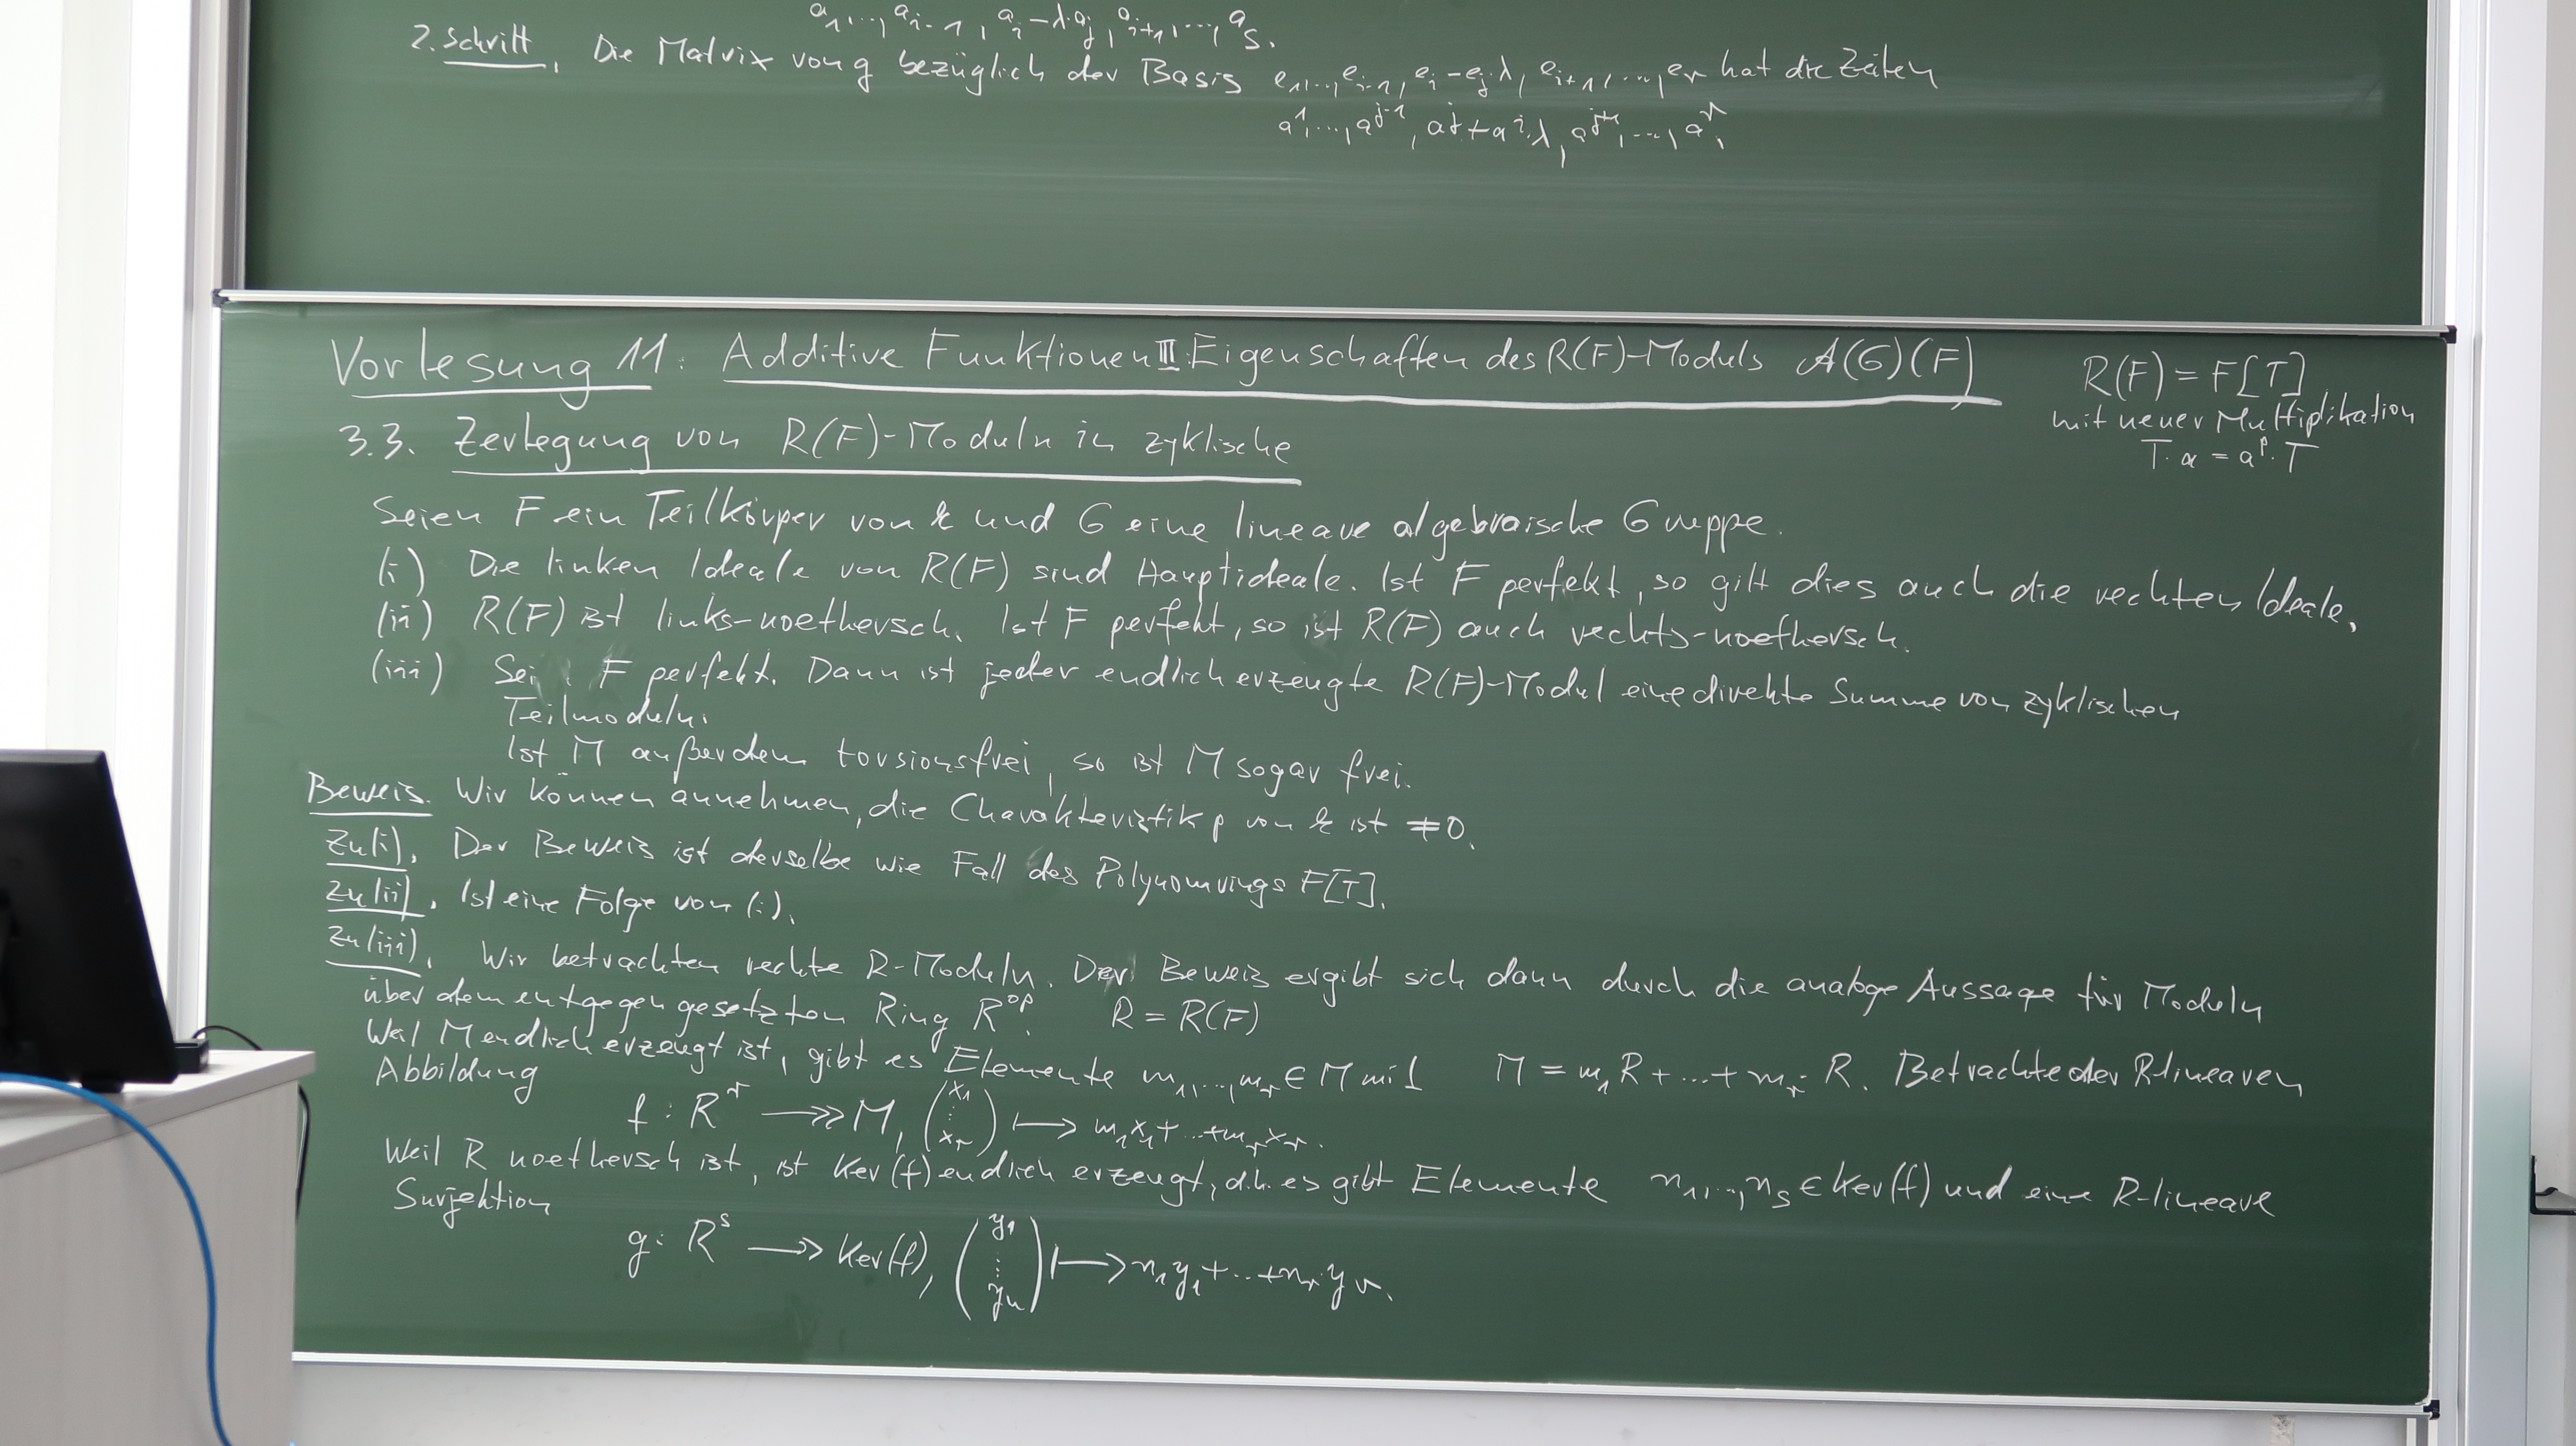 a₁,…, a_{i-1}, a_i - λ·a_j, a_{i+1},…, a_s.
2. Schritt. Die Matrix von g bezüglich der Basis e₁,…, e_{i-1}, e_i - e_j·λ, e_{i+1},…, e_r hat die Zeilen
a¹,…, a^{j-1}, a^j + a^i·λ, a^{j+1},…, a^r,
Vorlesung 11: Additive Funktionen III: Eigenschaften des R(F)-Moduls A(G)(F)
R(F) = F[T]
mit neuer Multiplikation
T·a = a^p·T
3.3. Zerlegung von R(F)-Moduln in zyklische
Seien F ein Teilkörper von k und G eine lineare algebraische Gruppe.
(i) Die linken Ideale von R(F) sind Hauptideale. Ist F perfekt, so gilt dies auch die rechten Ideale.
(ii) R(F) ist links-noethersch. Ist F perfekt, so ist R(F) auch rechts-noethersch.
(iii) Sei F perfekt. Dann ist jeder endlich erzeugte R(F)-Modul eine direkte Summe von zyklischen
Teilmoduln.
Ist M außerdem torsionsfrei, so ist M sogar frei.
Beweis. Wir können annehmen, die Charakteristik p von k ist ≠0.
Zu (i). Der Beweis ist derselbe wie Fall des Polynomrings F[T].
Zu (ii). Ist eine Folge von (i).
Zu (iii). Wir betrachten rechte R-Moduln. Der Beweis ergibt sich dann durch die analoge Aussage für Moduln
über dem entgegengesetzten Ring R^{op}. R = R(F)
Weil M endlich erzeugt ist, gibt es Elemente m₁,…,m_r ∈ M mit M = m₁R + … + m_r R. Betrachte der R-linearen
Abbildung
f : R^r ↠ M, (x₁ ⋮ x_r) ⟼ m₁x₁ + … + m_r x_r.
Weil R noethersch ist, ist Ker(f) endlich erzeugt, d.h. es gibt Elemente n₁,…,n_s ∈ Ker(f) und eine R-lineare
Surjektion
g : R^s ↠ Ker(f), (y₁ ⋮ y_n) ⟼ n₁y₁ + … + n_r y_r.